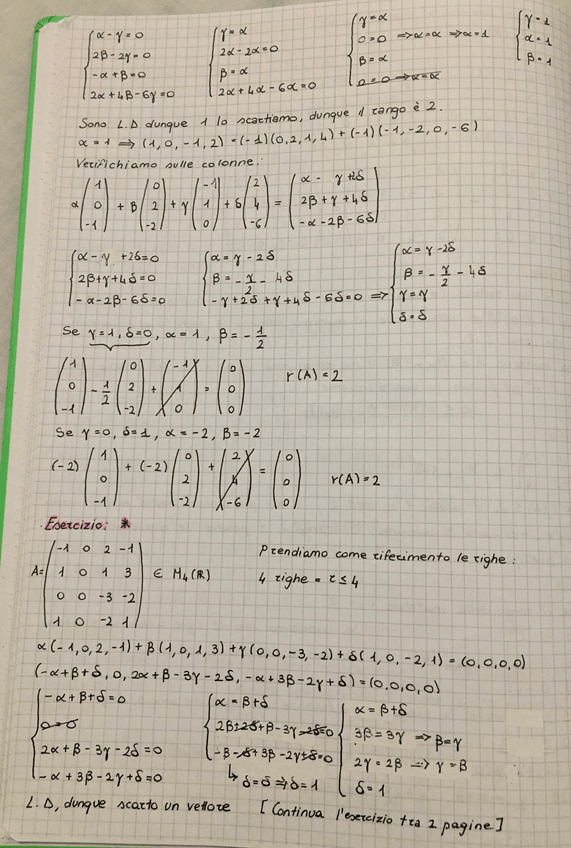 {α - γ = 0   {γ = α   {γ = α   {γ = 1
2β - 2γ = 0   2α - 2α = 0   0 = 0 ⇒ α = α ⇒ α = 1   α = 1
-α + β = 0   β = α   β = α   β = 1
2α + 4β - 6γ = 0   2α + 4α - 6α = 0   0 = 0 ⇒ α = α
Sono L.D dunque 1 lo scartiamo, dunque il rango è 2.
α = 1 ⇒ (1, 0, -1, 2) = (-1)(0, 2, 1, 4) + (-1)(-1, -2, 0, -6)
Verifichiamo sulle colonne:
α (1 0 -1) + β (0 2 -2) + γ (-1 1 0) + δ (2 4 -6) = (α - γ + 2δ   2β + γ + 4δ   -α - 2β - 6δ)
{α - γ + 2δ = 0   {α = γ - 2δ   {α = γ - 2δ
2β + γ + 4δ = 0   β = - γ/2 - 4δ   β = - γ/2 - 4δ
-α - 2β - 6δ = 0   -γ + 2δ + γ + 4δ - 6δ = 0 ⇒   γ = γ
δ = δ
Se γ = 1, δ = 0, α = 1, β = - 1/2
(1 0 -1) - 1/2 (0 2 -2) + (-1 1 0) = (0 0 0)   r(A) = 2
Se γ = 0, δ = 1, α = -2, β = -2
(-2) (1 0 -1) + (-2) (0 2 -2) + (2 4 -6) = (0 0 0)   r(A) = 2
Esercizio: *
A = (-1 0 2 -1   1 0 1 3   0 0 -3 -2   1 0 -2 1) ∈ M₄(ℝ)
Prendiamo come riferimento le righe:
4 righe = r ≤ 4
α(-1, 0, 2, -1) + β(1, 0, 1, 3) + γ(0, 0, -3, -2) + δ(1, 0, -2, 1) = (0, 0, 0, 0)
(-α + β + δ, 0, 2α + β - 3γ - 2δ, -α + 3β - 2γ + δ) = (0, 0, 0, 0)
{-α + β + δ = 0   {α = β + δ   {α = β + δ
0 = 0   2β + 2δ + β - 3γ - 2δ = 0   3β = 3γ ⇒ β = γ
2α + β - 3γ - 2δ = 0   -β - δ + 3β - 2γ + δ = 0   2γ = 2β ⇒ γ = β
-α + 3β - 2γ + δ = 0   ↳ δ = δ ⇒ δ = 1   δ = 1
L.D, dunque scarto un vettore   [Continua l'esercizio tra 2 pagine]